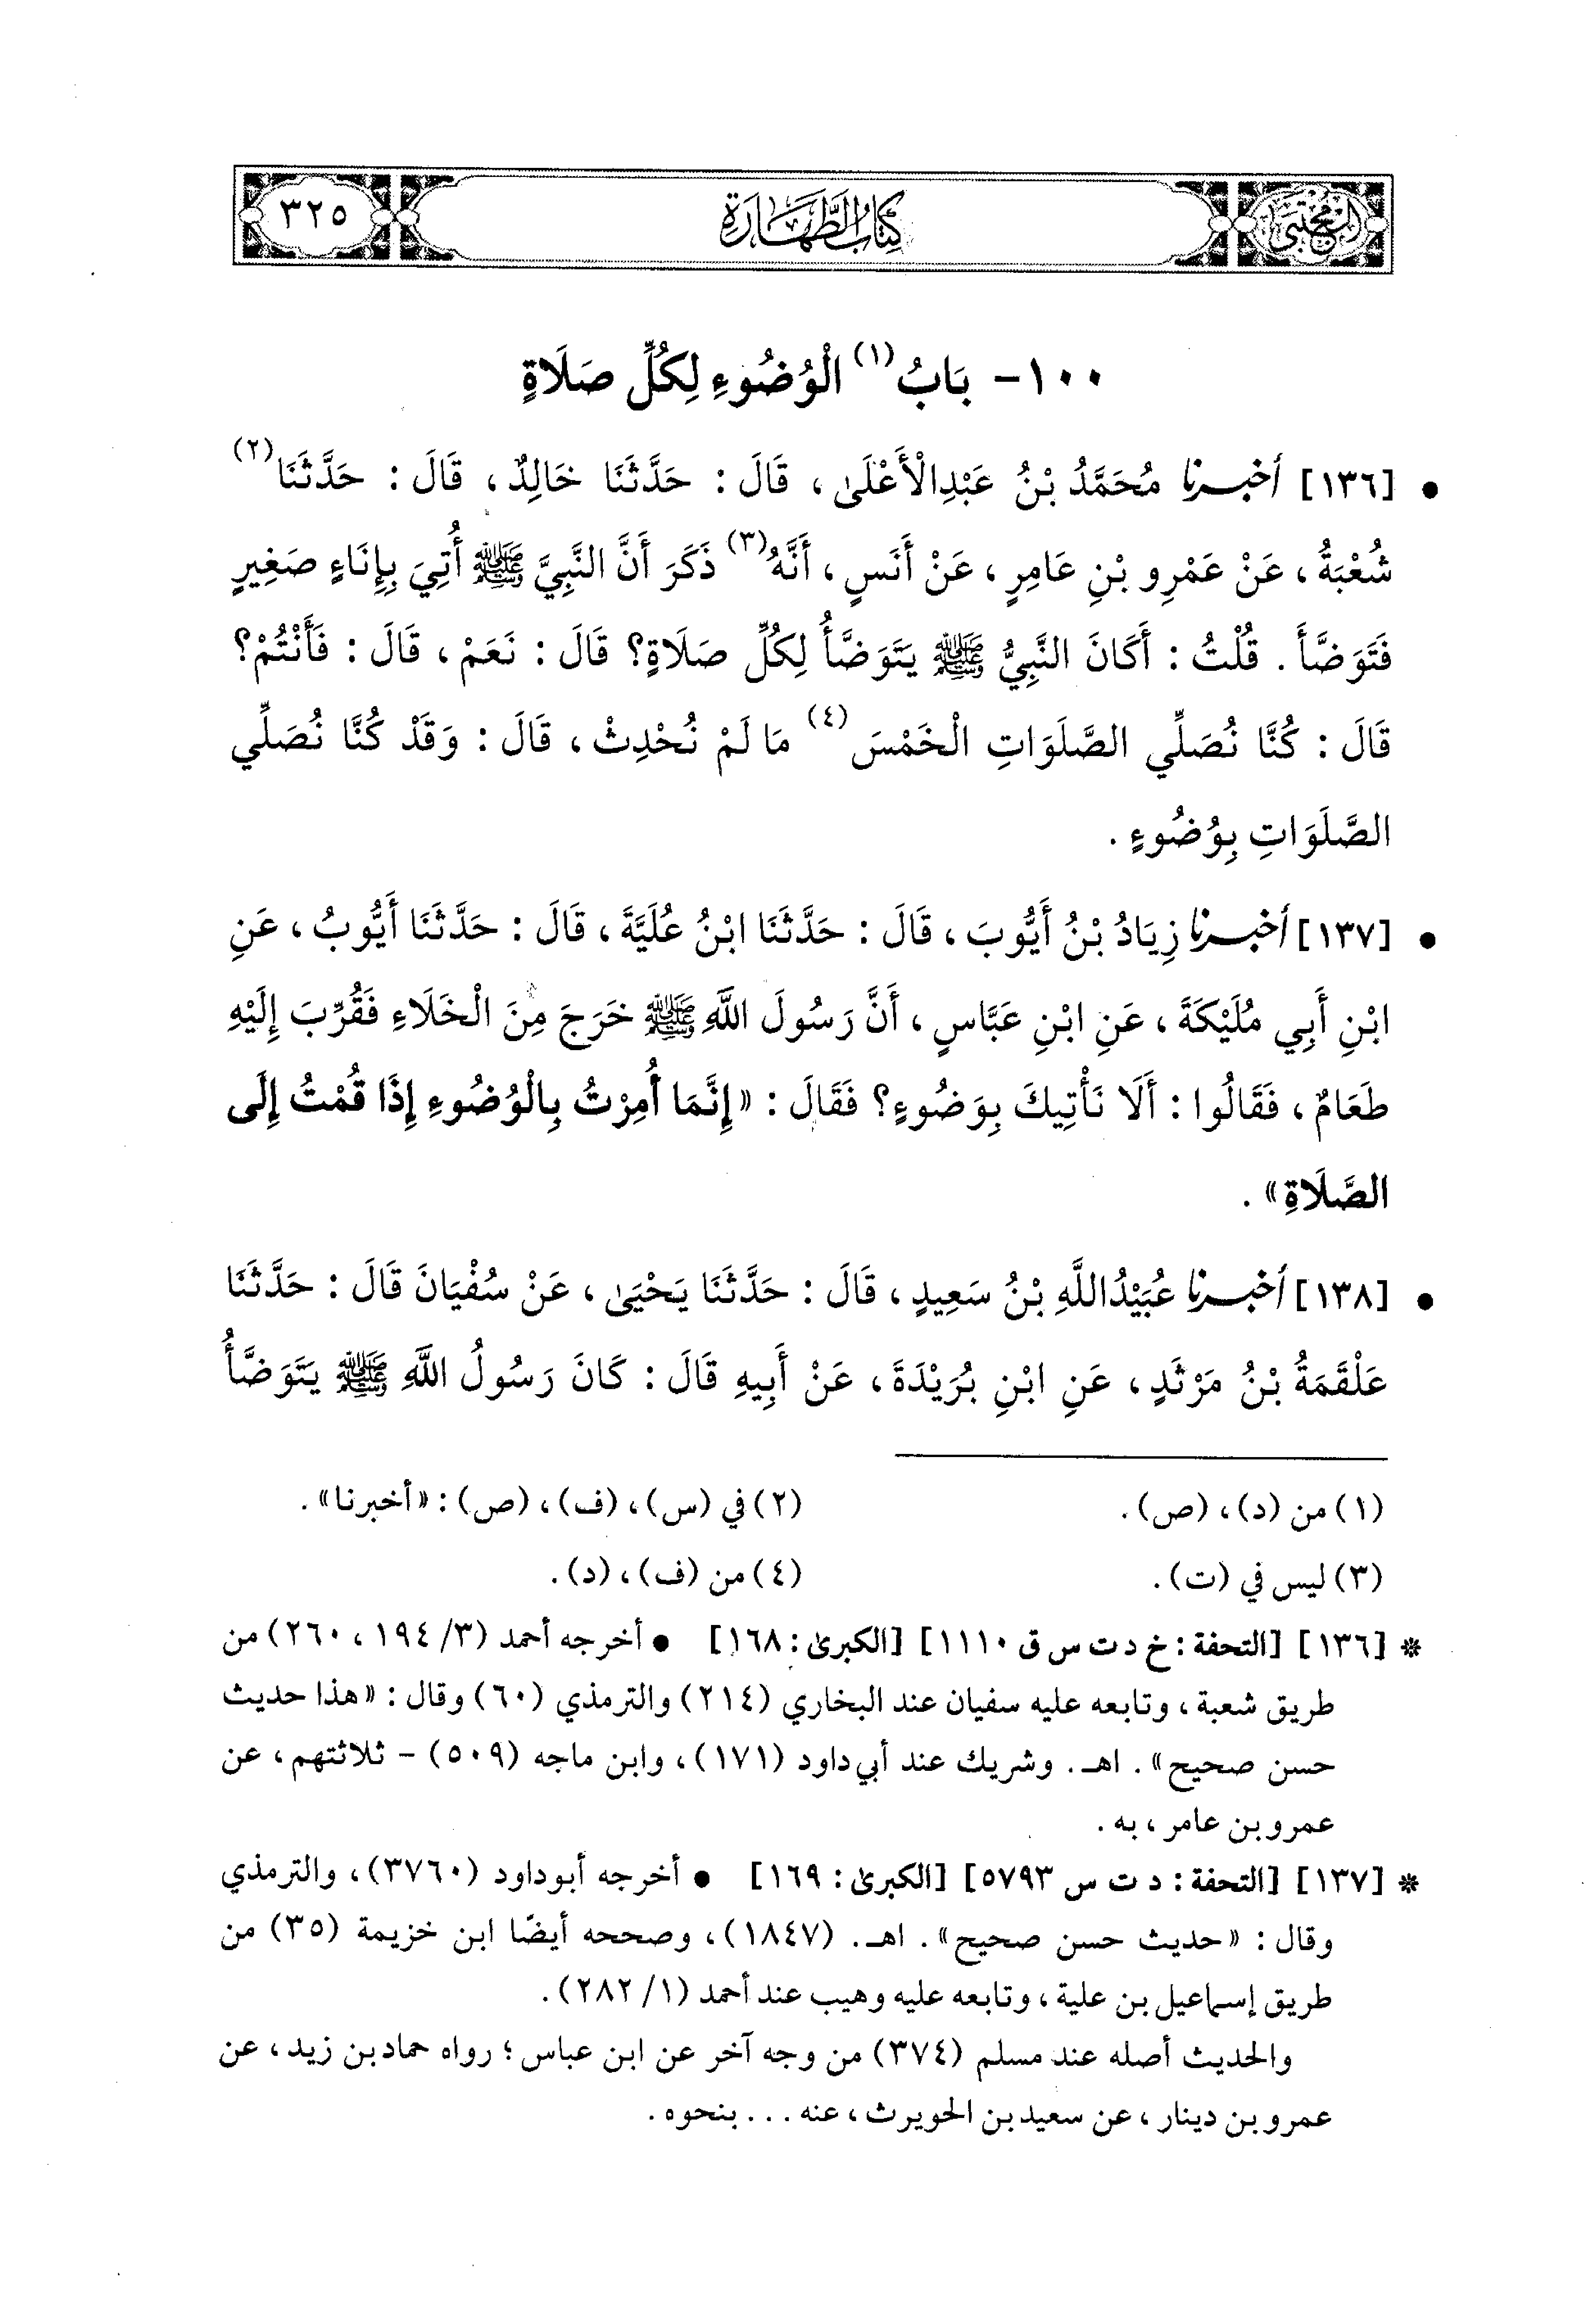 المجتبى
كتاب الطهارة
٣٢٥
١٠٠- بَابُ(١) الْوُضُوءِ لِكُلِّ صَلَاةٍ
• [١٣٦] أخبرنا مُحَمَّدُ بْنُ عَبْدِالْأَعْلَى، قَالَ: حَدَّثَنَا خَالِدٌ، قَالَ: حَدَّثَنَا(٢)
شُعْبَةُ، عَنْ عَمْرِو بْنِ عَامِرٍ، عَنْ أَنَسٍ، أَنَّهُ(٣) ذَكَرَ أَنَّ النَّبِيَّ ﷺ أُتِيَ بِإِنَاءٍ صَغِيرٍ
فَتَوَضَّأَ. قُلْتُ: أَكَانَ النَّبِيُّ ﷺ يَتَوَضَّأُ لِكُلِّ صَلَاةٍ؟ قَالَ: نَعَمْ، قَالَ: فَأَنْتُمْ؟
قَالَ: كُنَّا نُصَلِّي الصَّلَوَاتِ الْخَمْسَ(٤) مَا لَمْ نُحْدِثْ، قَالَ: وَقَدْ كُنَّا نُصَلِّي
الصَّلَوَاتِ بِوُضُوءٍ.
• [١٣٧] أخبرنا زِيَادُ بْنُ أَيُّوبَ، قَالَ: حَدَّثَنَا ابْنُ عُلَيَّةَ، قَالَ: حَدَّثَنَا أَيُّوبُ، عَنِ
ابْنِ أَبِي مُلَيْكَةَ، عَنِ ابْنِ عَبَّاسٍ، أَنَّ رَسُولَ اللَّهِ ﷺ خَرَجَ مِنَ الْخَلَاءِ فَقُرِّبَ إِلَيْهِ
طَعَامٌ، فَقَالُوا: أَلَا نَأْتِيكَ بِوَضُوءٍ؟ فَقَالَ: «إِنَّمَا أُمِرْتُ بِالْوُضُوءِ إِذَا قُمْتُ إِلَى
الصَّلَاةِ».
• [١٣٨] أخبرنا عُبَيْدُاللَّهِ بْنُ سَعِيدٍ، قَالَ: حَدَّثَنَا يَحْيَىٰ، عَنْ سُفْيَانَ قَالَ: حَدَّثَنَا
عَلْقَمَةُ بْنُ مَرْثَدٍ، عَنِ ابْنِ بُرَيْدَةَ، عَنْ أَبِيهِ قَالَ: كَانَ رَسُولُ اللَّهِ ﷺ يَتَوَضَّأُ
(١) من (د)، (ص). (٢) في (س)، (ف)، (ص): «أخبرنا».
(٣) ليس في (ت). (٤) من (ف)، (د).
* [١٣٦] [التحفة: خ د ت س ق ١١١٠] [الكبرى: ١٦٨] • أخرجه أحمد (٣/ ١٩٤، ٢٦٠) من
طريق شعبة، وتابعه عليه سفيان عند البخاري (٢١٤) والترمذي (٦٠) وقال: «هذا حديث
حسن صحيح». اهـ. وشريك عند أبي داود (١٧١)، وابن ماجه (٥٠٩) - ثلاثتهم، عن
عمرو بن عامر، به.
* [١٣٧] [التحفة: د ت س ٥٧٩٣] [الكبرى: ١٦٩] • أخرجه أبوداود (٣٧٦٠)، والترمذي
وقال: «حديث حسن صحيح». اهـ. (١٨٤٧)، وصححه أيضًا ابن خزيمة (٣٥) من
طريق إسماعيل بن علية، وتابعه عليه وهيب عند أحمد (١/ ٢٨٢).
والحديث أصله عند مسلم (٣٧٤) من وجه آخر عن ابن عباس؛ رواه حماد بن زيد، عن
عمرو بن دينار، عن سعيد بن الحويرث، عنه ... بنحوه.